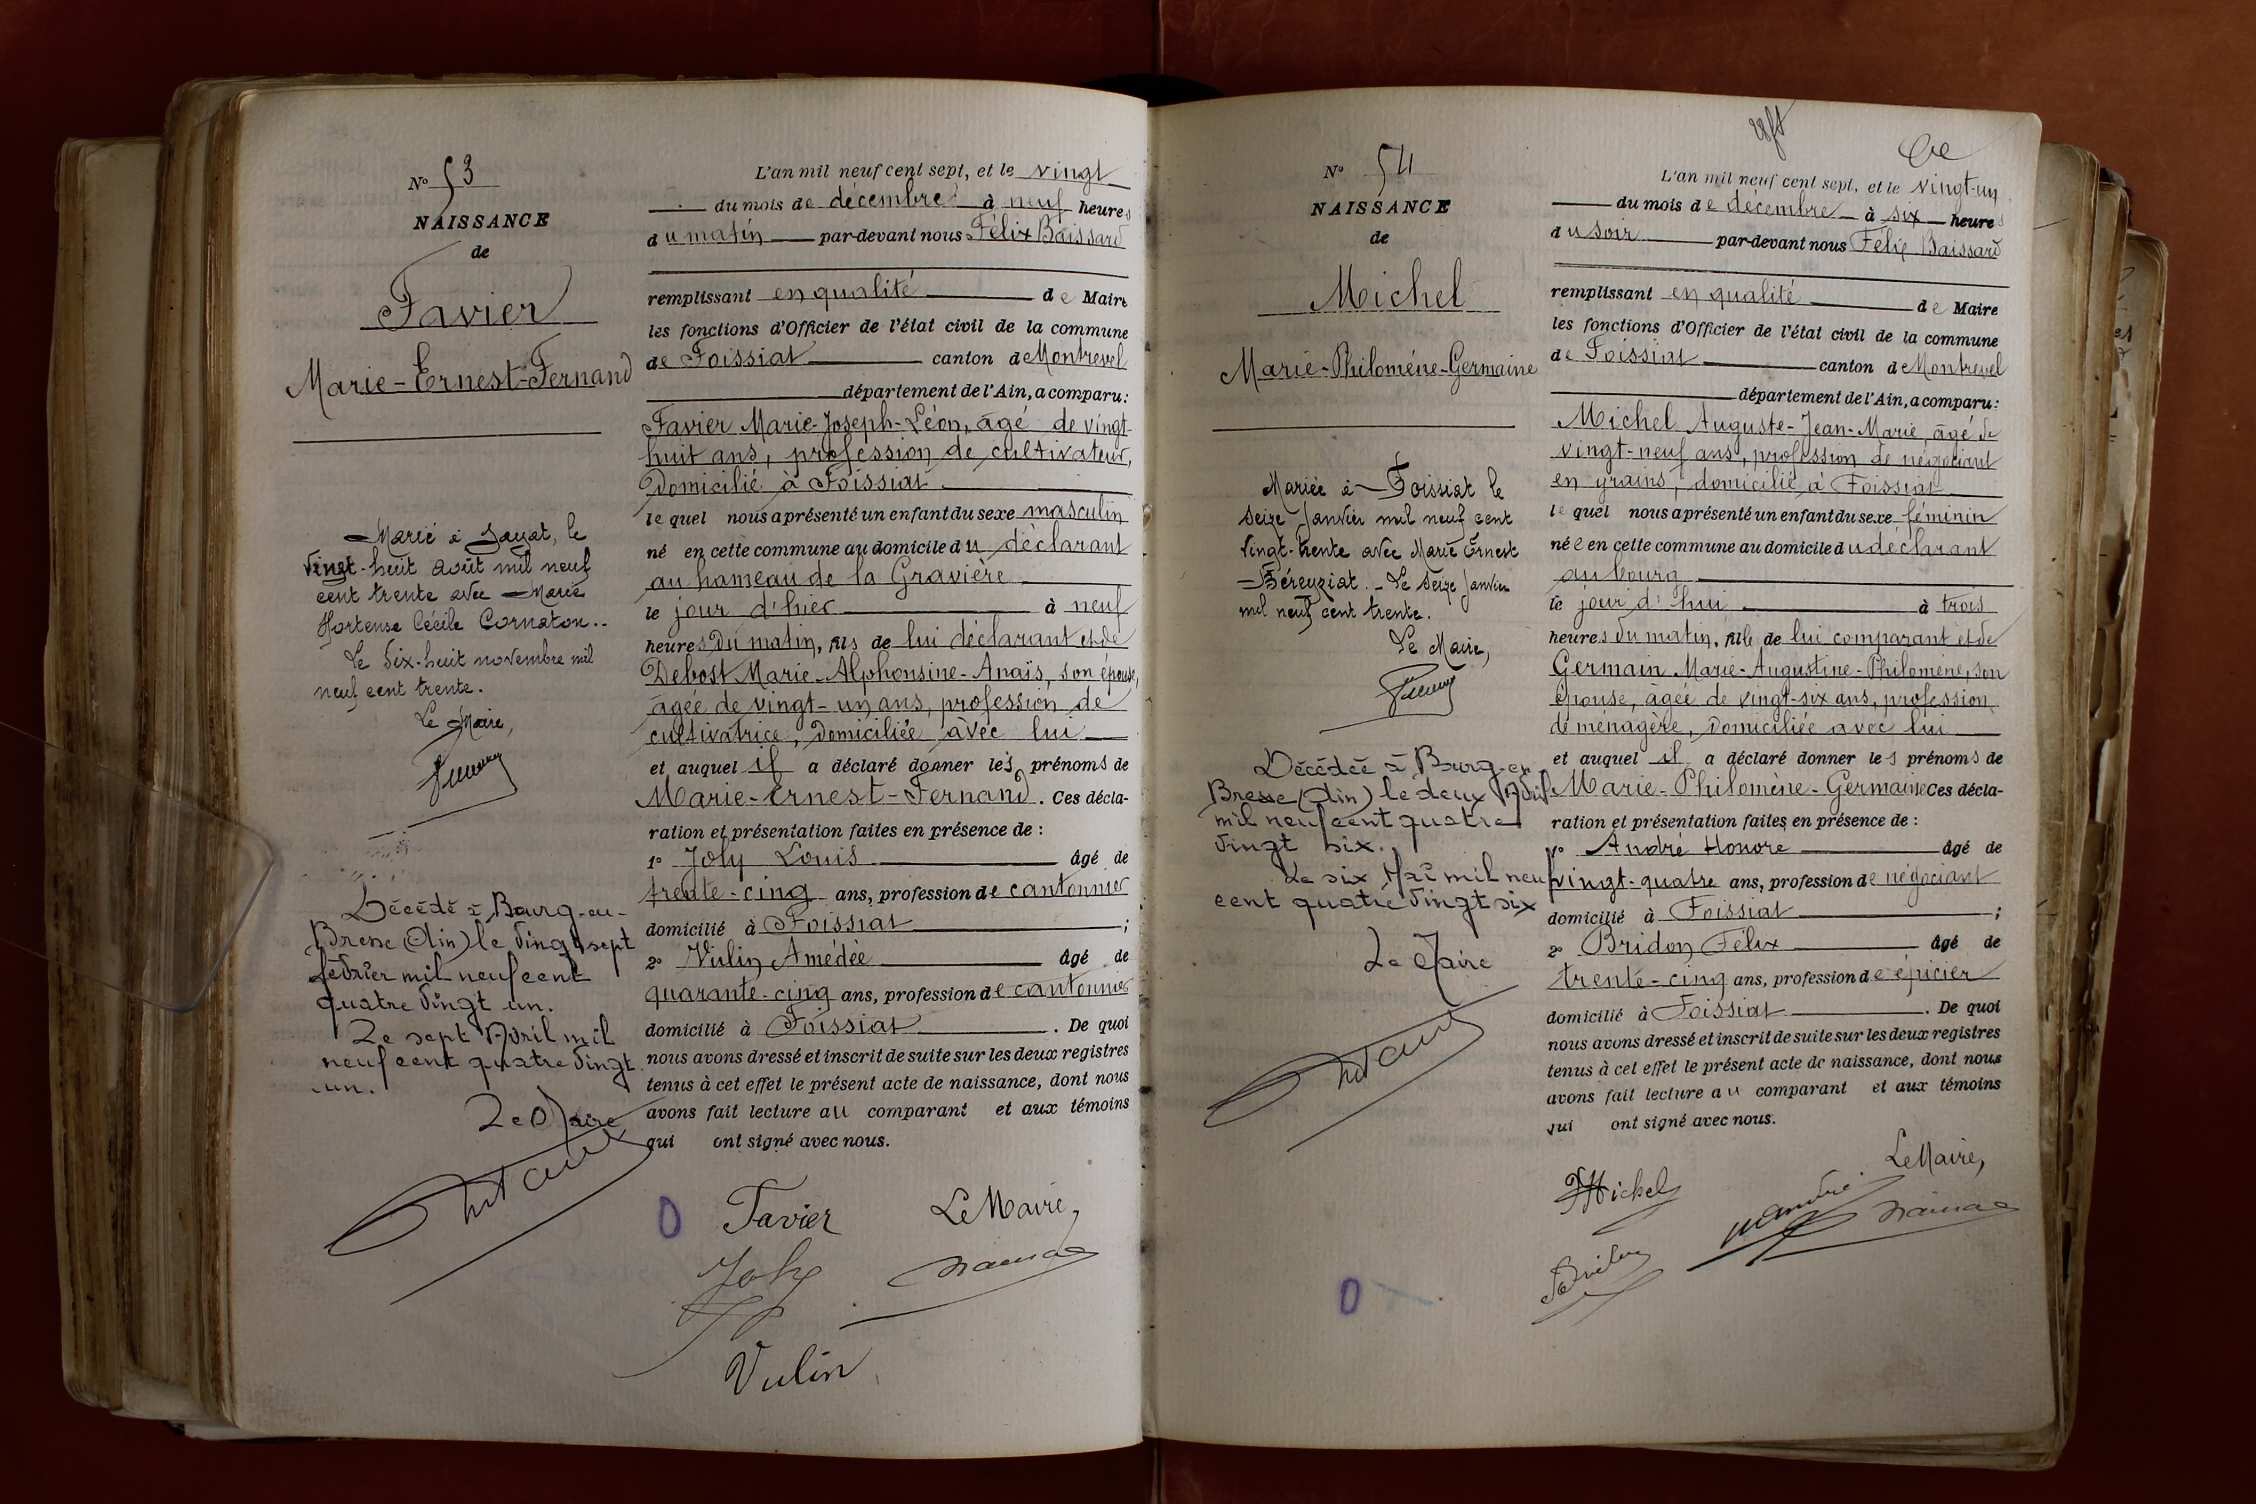 N° 53
NAISSANCE
de
Favier
Marie-Ernest-Fernand
Marié à Jayat, le
vingt-huit août mil neuf
cent trente avec Marie
Hortense Cécile Cornaton.
Le dix-huit novembre mil
neuf cent trente.
Le Maire,
Décédé à Bourg-en-
Bresse (Ain) le vingt sept
février mil neuf cent
quatre vingt un.
Le sept Avril mil
neuf cent quatre vingt
un.
Le Maire
L'an mil neuf cent sept, et le vingt
du mois de décembre à neuf heures
du matin par-devant nous Félix Baissard
remplissant en qualité de Maire
les fonctions d'Officier de l'état civil de la commune
de Foissiat canton de Montrevel
département de l'Ain, a comparu:
Favier Marie-Joseph-Léon, âgé de vingt-
huit ans, profession de cultivateur,
domicilié à Foissiat
lequel nous a présenté un enfant du sexe masculin
né en cette commune au domicile du déclarant
au hameau de la Gravière
le jour d'hier à neuf
heures du matin, fils de lui déclarant et de
Debost Marie-Alphonsine-Anaïs, son épouse,
âgée de vingt-un ans, profession de
cultivatrice, domiciliée avec lui
et auquel il a déclaré donner les prénoms de
Marie-Ernest-Fernand. Ces décla-
ration et présentation faites en présence de :
1° Joly Louis âgé de
trente-cinq ans, profession de cantonnier
domicilié à Foissiat ;
2° Vulin Amédée âgé de
quarante-cinq ans, profession de cantonnier
domicilié à Foissiat. De quoi
nous avons dressé et inscrit de suite sur les deux registres
tenus à cet effet le présent acte de naissance, dont nous
avons fait lecture au comparant et aux témoins
qui ont signé avec nous.
Favier Le Maire,
Joly
Vulin
N° 54
NAISSANCE
de
Michel
Marie-Philomène-Germaine
Mariée à Foissiat le
seize janvier mil neuf cent
vingt-trente avec Marie Ernest
Béreyziat. Le seize janvier
mil neuf cent trente.
Le Maire,
Décédée à Bourg-en
Bresse (Ain) le deux Avril
mil neuf cent quatre
vingt six.
Le six Mai mil neuf
cent quatre vingt six
Le Maire
L'an mil neuf cent sept, et le vingt-un
du mois de décembre à six heures
du soir par-devant nous Félix Baissard
remplissant en qualité de Maire
les fonctions d'Officier de l'état civil de la commune
de Foissiat canton de Montrevel
département de l'Ain, a comparu:
Michel Auguste-Jean-Marie, âgé de
vingt-neuf ans, profession de négociant
en grains, domicilié à Foissiat
lequel nous a présenté un enfant du sexe féminin
née en cette commune au domicile du déclarant
au bourg
le jour d'hui à trois
heures du matin, fille de lui comparant et de
Germain Marie-Augustine-Philomène, son
épouse, âgée de vingt-six ans, profession
de ménagère, domiciliée avec lui
et auquel il a déclaré donner les prénoms de
Marie-Philomène-Germaine Ces décla-
ration et présentation faites en présence de :
1° André Honoré âgé de
vingt-quatre ans, profession de négociant
domicilié à Foissiat ;
2° Bridon Félix âgé de
trente-cinq ans, profession de épicier
domicilié à Foissiat. De quoi
nous avons dressé et inscrit de suite sur les deux registres
tenus à cet effet le présent acte de naissance, dont nous
avons fait lecture au comparant et aux témoins
qui ont signé avec nous.
Le Maire,
Michel